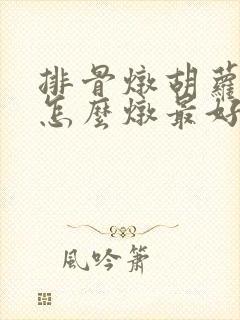 排骨燉胡蘿
怎麼燉最好
風吟簫